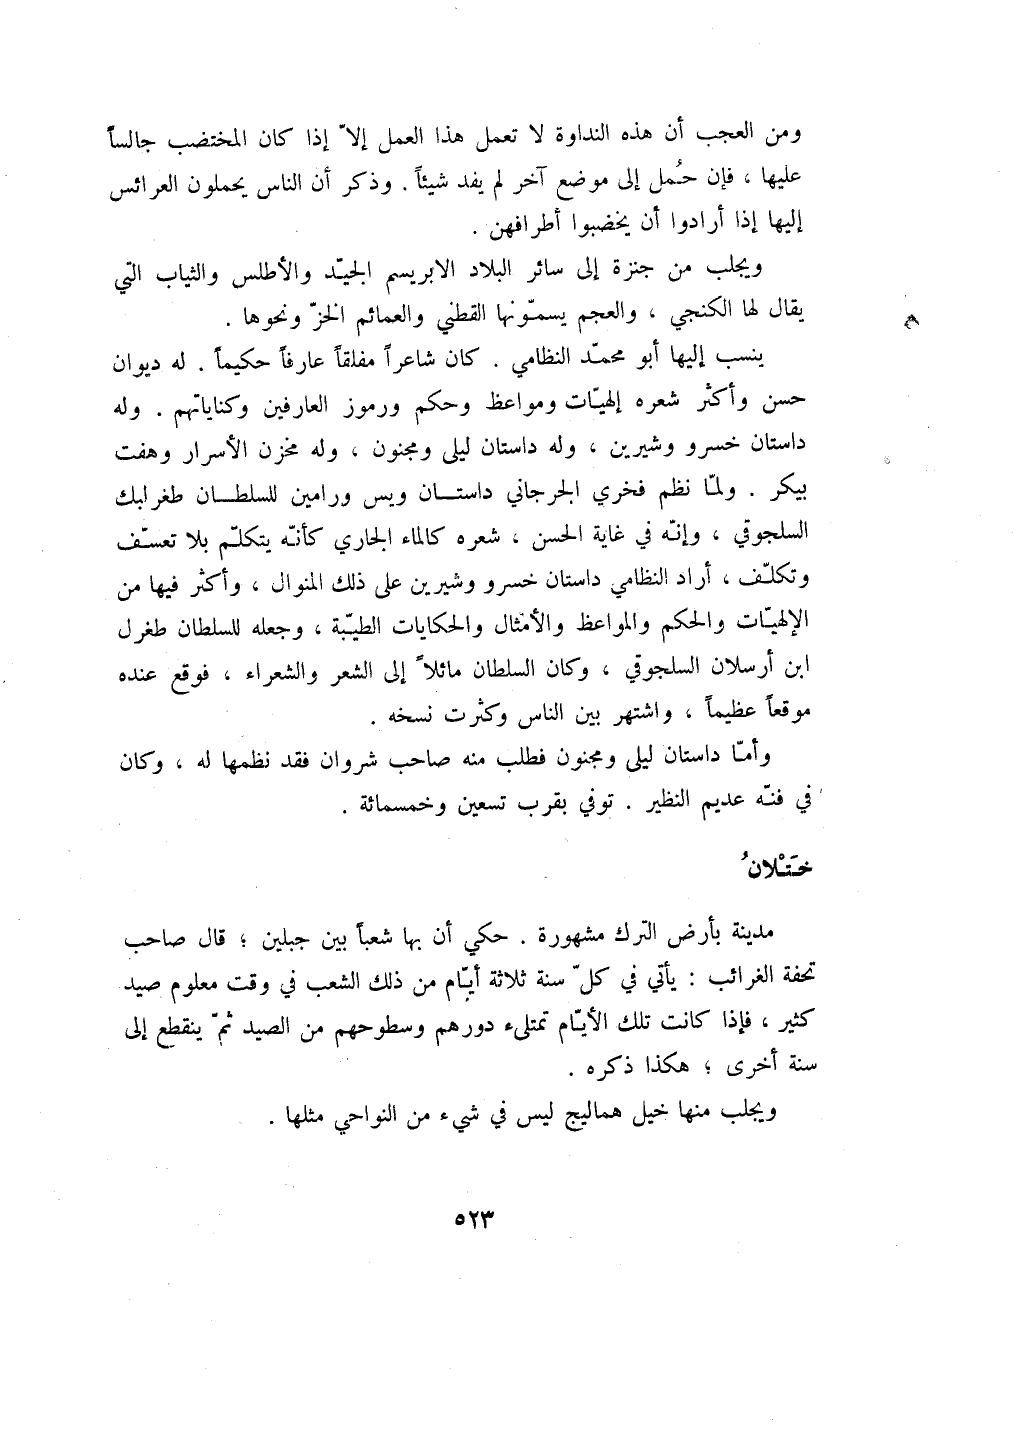 ومن العجب أن هذه النداوة لا تعمل هذا العمل إلاّ إذا كان المختضب جالساً
عليها ، فإن حُمل إلى موضع آخر لم يفد شيئاً . وذكر أن الناس يحملون العرائس
إليها إذا أرادوا أن يخضبوا أطرافهن .
ويجلب من جنزة إلى سائر البلاد الابريسم الجيّد والأطلس والثياب التي
يقال لها الكنجي ، والعجم يسمّونها القطني والعمائم الخزّ ونحوها .
ينسب إليها أبو محمّد النظامي . كان شاعراً مفلقاً عارفاً حكيماً . له ديوان
حسن وأكثر شعره إلهيّات ومواعظ وحكم ورموز العارفين وكناياتهم . وله
داستان خسرو وشيرين ، وله داستان ليلى ومجنون ، وله مخزن الأسرار وهفت
بيكر . ولمّا نظم فخري الجرجاني داستان ويس ورامين للسلطان طغرلبك
السلجوقي ، وإنّه في غاية الحسن ، شعره كالماء الجاري كأنّه يتكلّم بلا تعسّف
وتكلّف ، أراد النظامي داستان خسرو وشيرين على ذلك المنوال ، وأكثر فيها من
الإلهيّات والحكم والمواعظ والأمثال والحكايات الطيّبة ، وجعله للسلطان طغرل
ابن أرسلان السلجوقي ، وكان السلطان مائلاً إلى الشعر والشعراء ، فوقع عنده
موقعاً عظيماً ، واشتهر بين الناس وكثرت نسخه .
وأمّا داستان ليلى ومجنون فطلب منه صاحب شروان فقد نظمها له ، وكان
في فنّه عديم النظير . توفي بقرب تسعين وخمسمائة .
خَتْلانُ
مدينة بأرض الترك مشهورة . حكي أن بها شعباً بين جبلين ؛ قال صاحب
تحفة الغرائب : يأتي في كلّ سنة ثلاثة أيّام من ذلك الشعب في وقت معلوم صيد
كثير ، فإذا كانت تلك الأيّام تمتلىء دورهم وسطوحهم من الصيد ثمّ ينقطع إلى
سنة أخرى ؛ هكذا ذكره .
ويجلب منها خيل هماليج ليس في شيء من النواحي مثلها .
٥٢٣